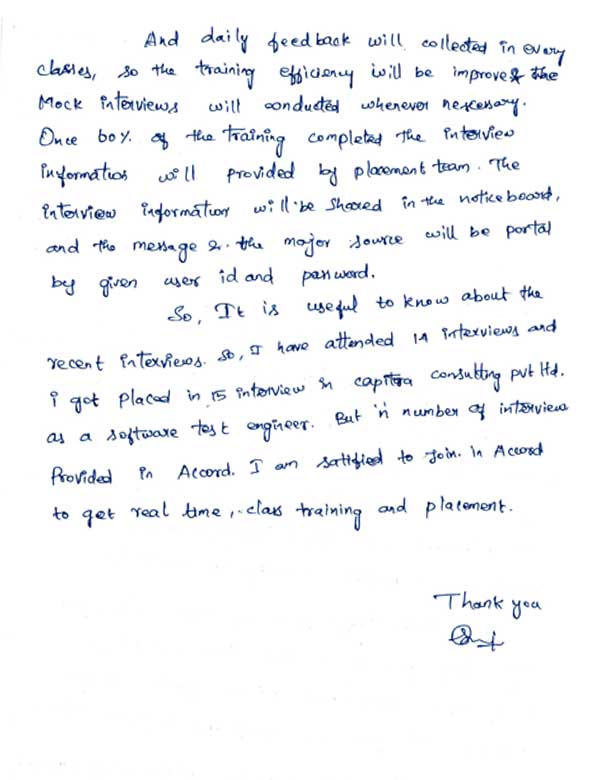 And daily feedback will collected in every
classes, so the training efficiency will be improve & the
Mock interviews will conducted whenever necessary.
Once 60% of the training completed the interview
information will provided by placement team. The
interview information will be shared in the noticeboard,
and the message &. the major source will be portal
by given user id and password.
So, It is useful to know about the
recent interviews. So, I have attended 14 interviews and
i got placed in 15 interview in capitra consulting pvt ltd.
as a software test engineer. But 'n' number of interview
Provided in Accord. I am satified to Join. in Accord
to get real time, class training and placement.
Thank you